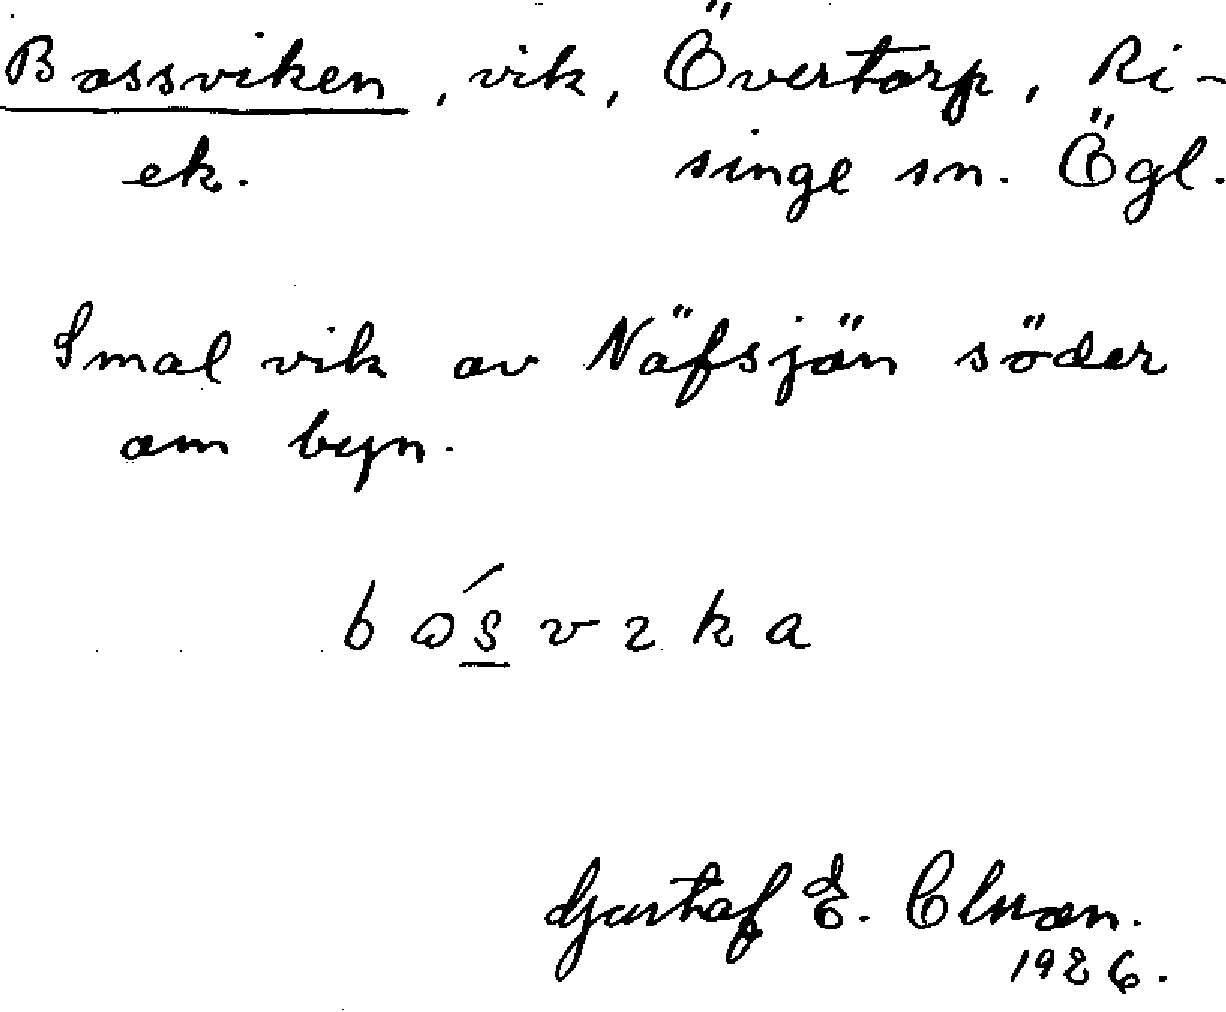 Bossviken, vik, Övertorp, Ri-
ek. singe sn. Ögl.
Smal vik av Näfsjön söder
om byn.
Gustaf E.
1926.